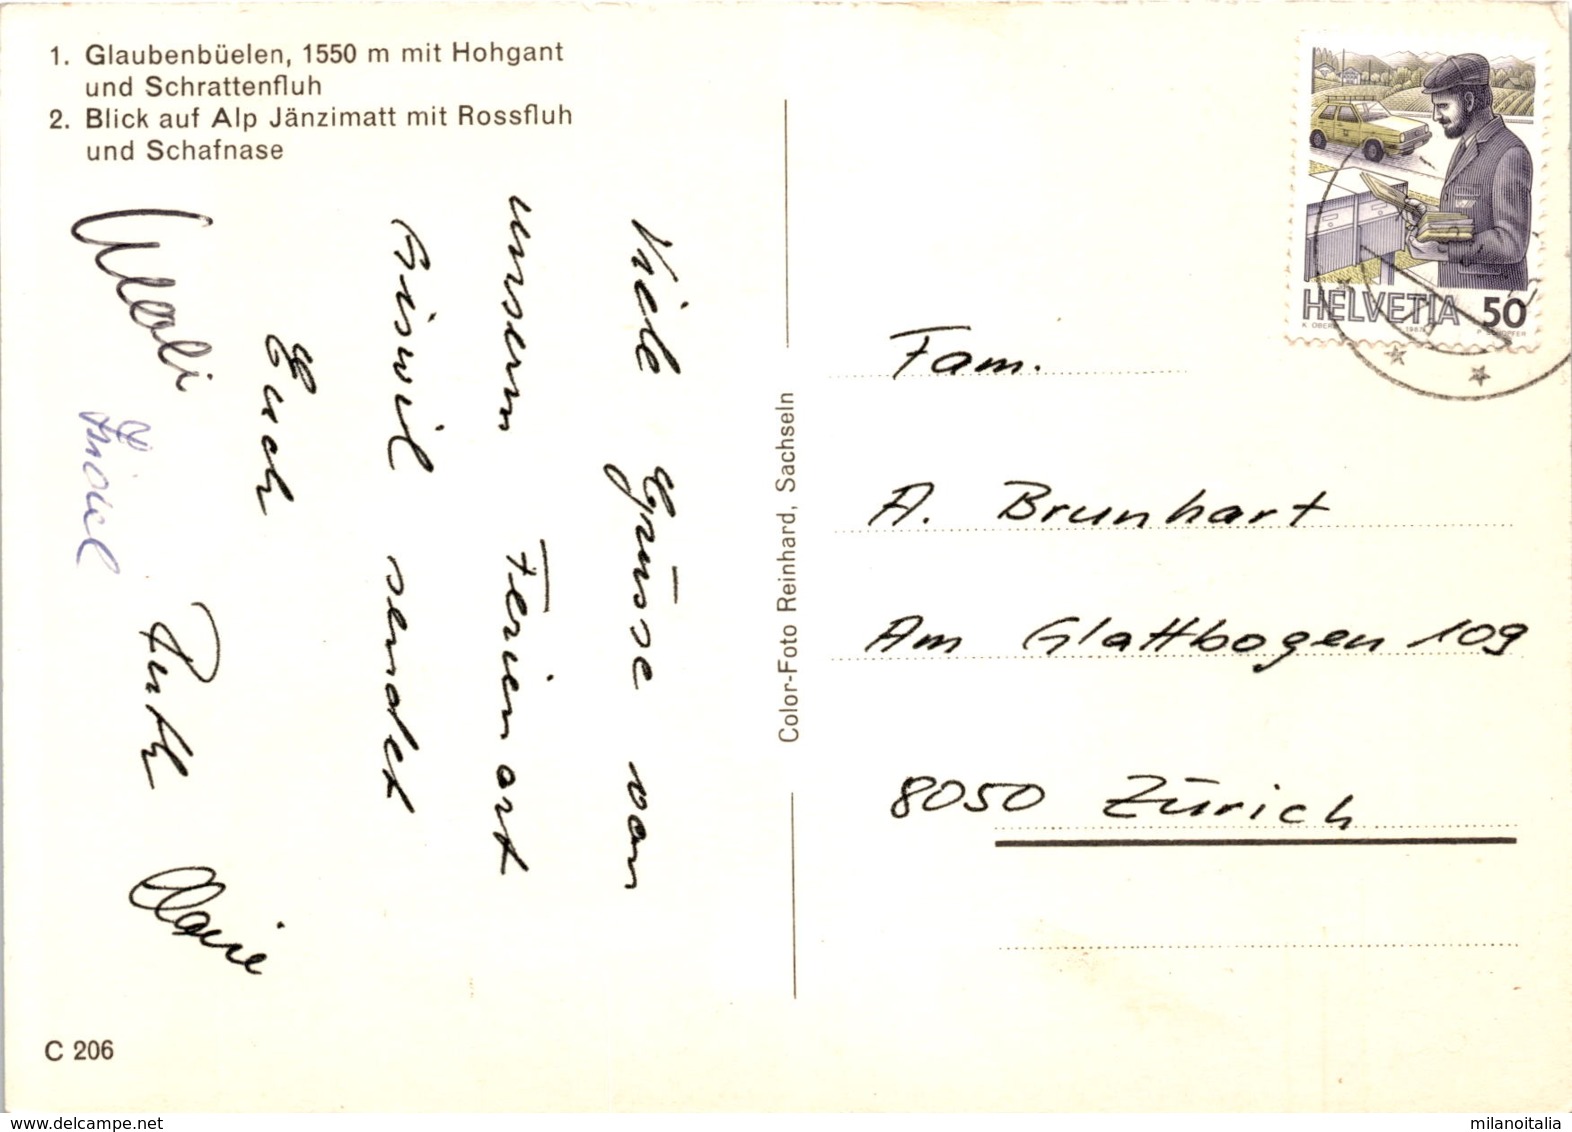 1. Glaubenbüelen, 1550 m mit Hohgant
und Schrattenfluh
2. Blick auf Alp Jänzimatt mit Rossfluh
und Schafnase
Viele Grüsse von
unserm Ferienort
Giswil sendet
Euch
Ruth
Color-Foto Reinhard, Sachseln
HELVETIA 50
1987
Fam.
A. Brunhart
Am Glattbogen 109
8050 Zürich
C 206
milanoitalia